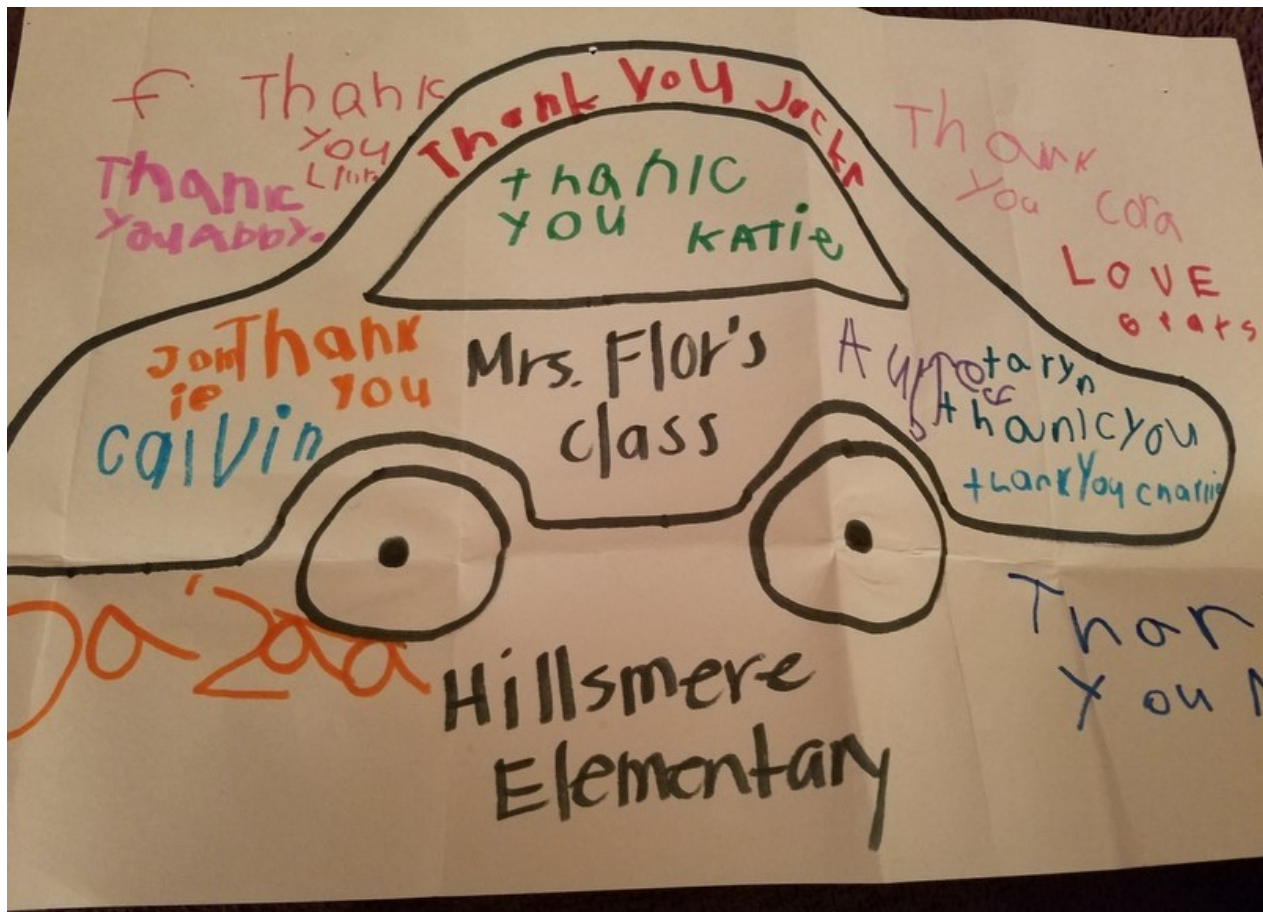 f Thank
you
Thank
you Abby.
Thank you
thank
you Katie
Thank
you Cora
LOVE
Jam
ie
Thank
you
calvin
Mrs. Flor's
class
taryn
thank you
thank you charlie
Hillsmere
Elementary
You